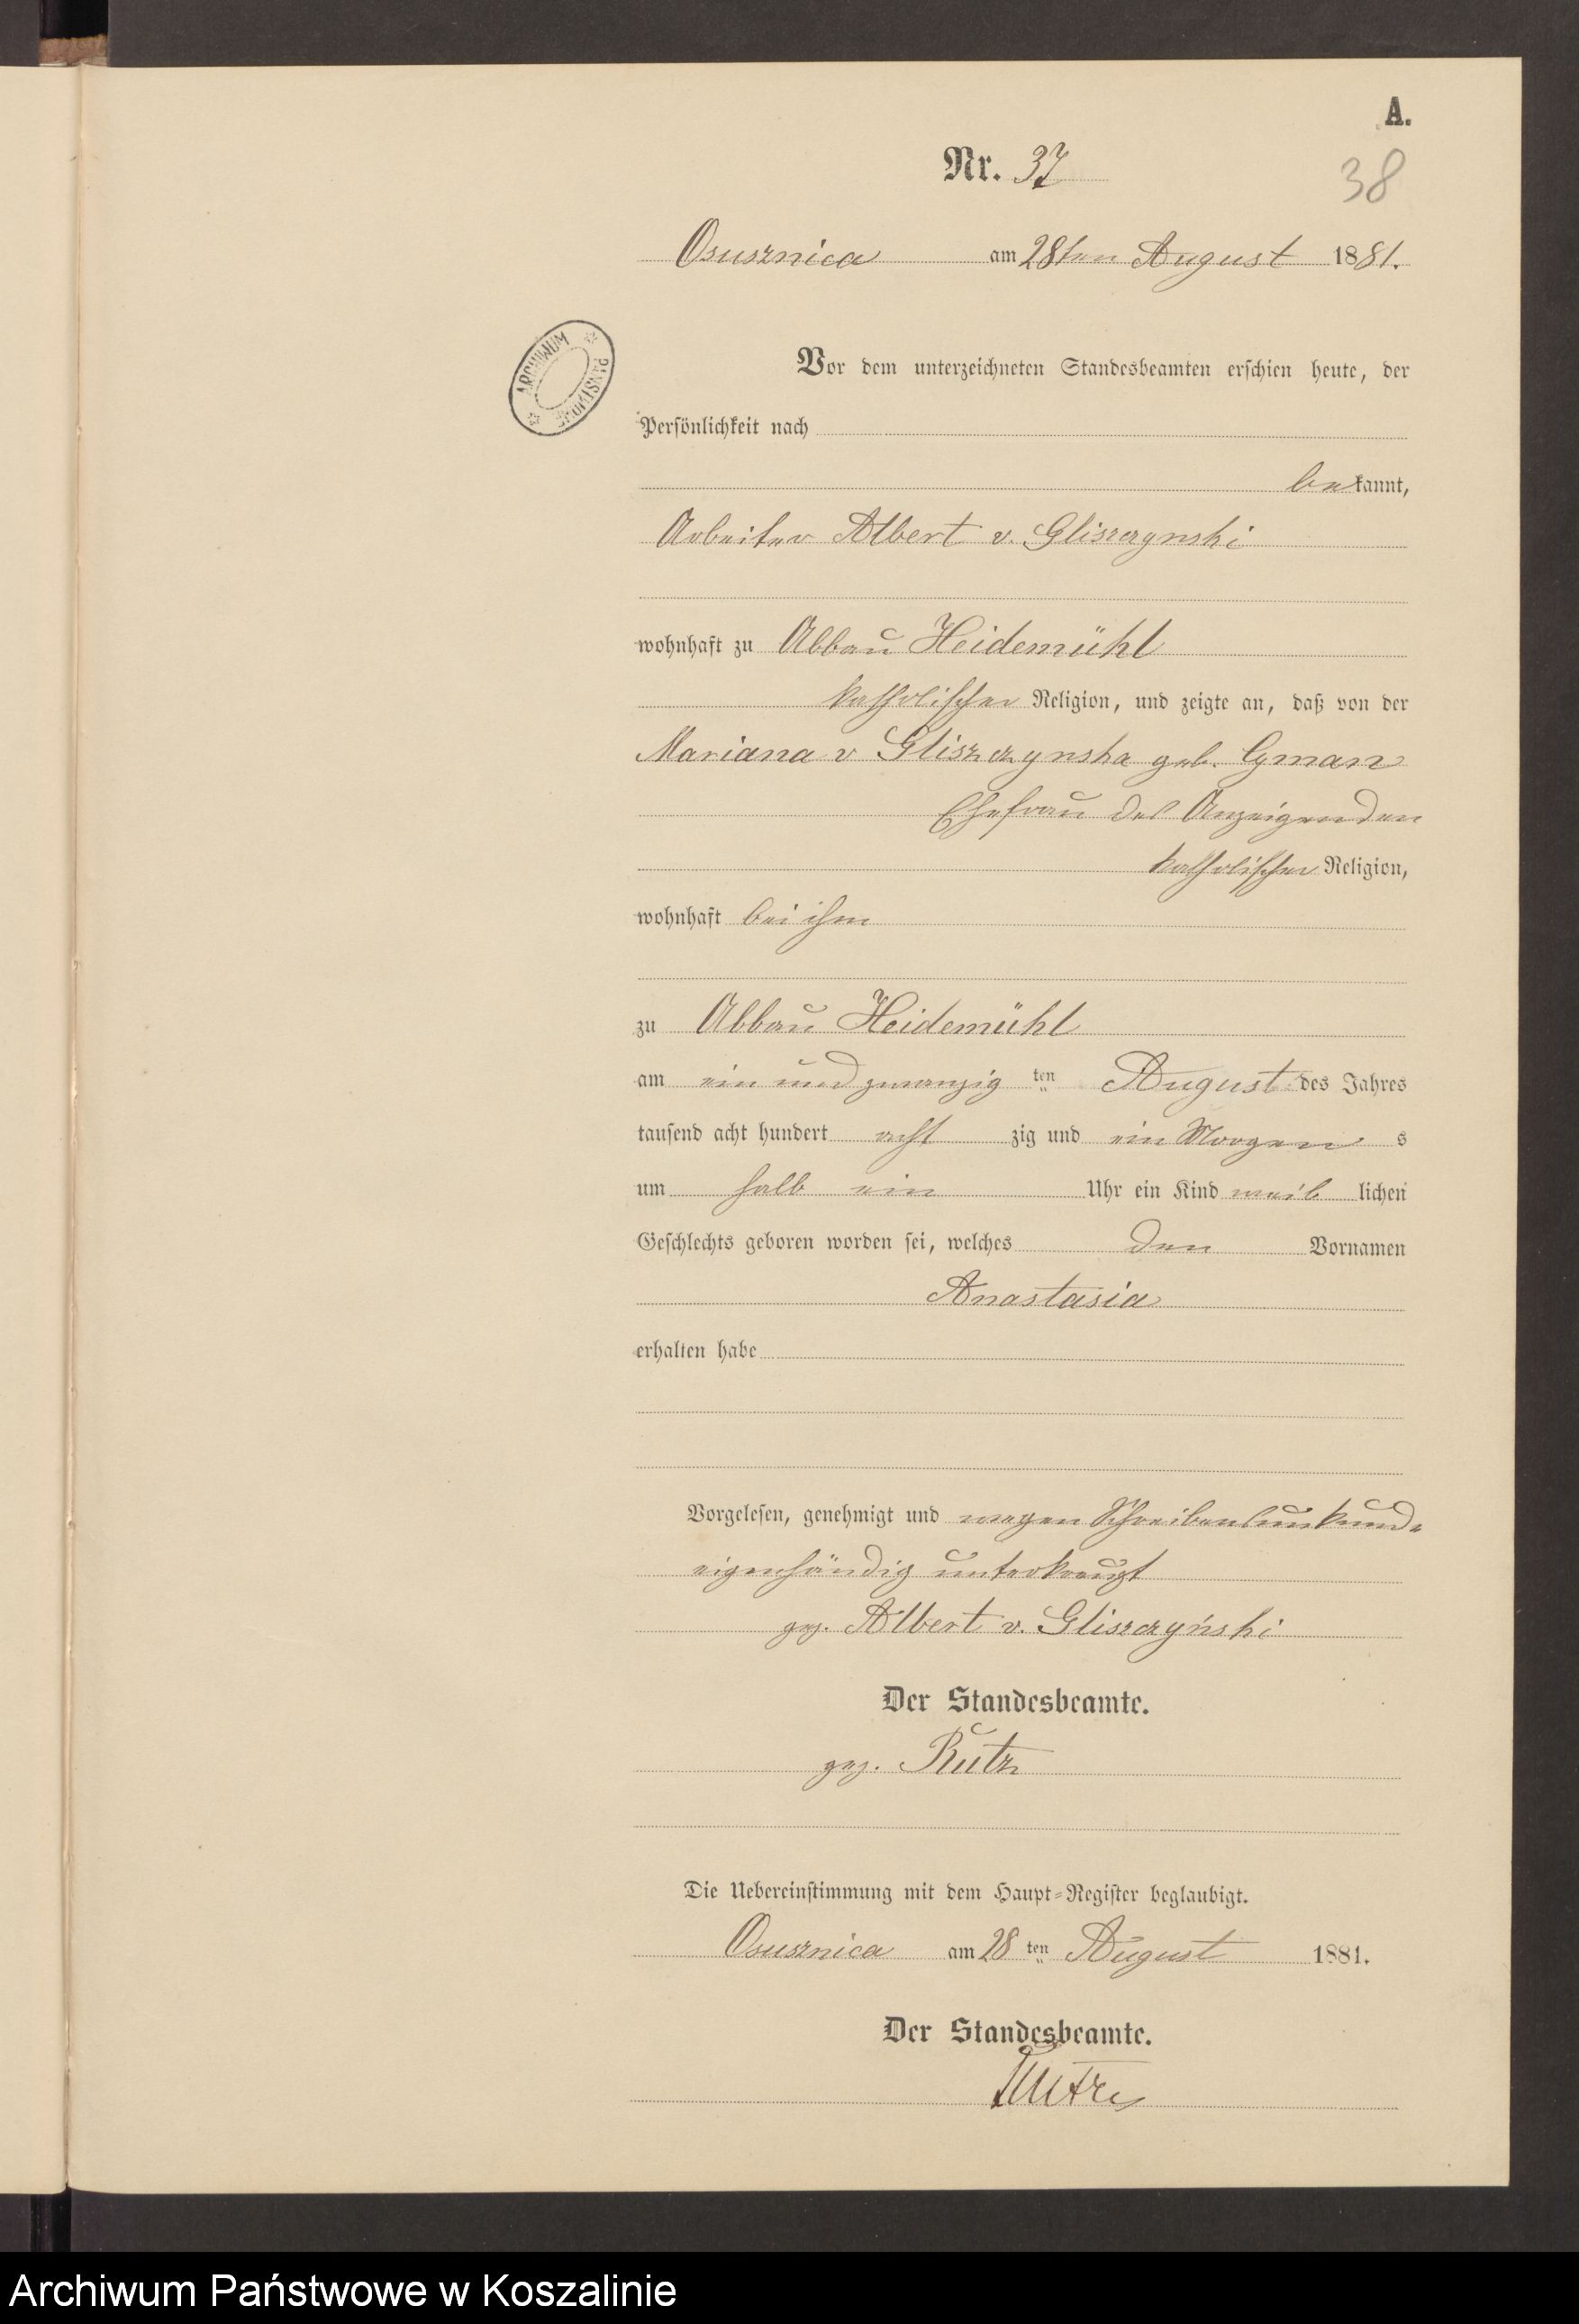 A.
Nr. 37
38
Osusznica am 28ten August 1881.
ARCHIWUM PAŃSTWOWE
Vor dem unterzeichneten Standesbeamten erschien heute, der
Persönlichkeit nach
bekannt,
Arbeiter Albert v. Gliszczynski
wohnhaft zu Abbau Heidemühl
katholischer Religion, und zeigte an, daß von der
Mariana v Gliszczynska geb. Cyman
Ehefrau des Anzeigenden
katholischer Religion,
wohnhaft bei ihm
zu Abbau Heidemühl
am ein und zwanzig ten August des Jahres
tausend acht hundert acht zig und ein Morgens
um halb ein Uhr ein Kind weiblichen
Geschlechts geboren worden sei, welches den Vornamen
Anastasia
erhalten habe
Vorgelesen, genehmigt und wegen Schreibensunkunde
eigenhändig unterkreuzt
gez. Albert v. Gliszczyński
Der Standesbeamte.
gez. Rutz
Die Uebereinstimmung mit dem Haupt-Register beglaubigt.
Osusznica am 28 ten August 1881.
Der Standesbeamte.
Rutz
Archiwum Państwowe w Koszalinie